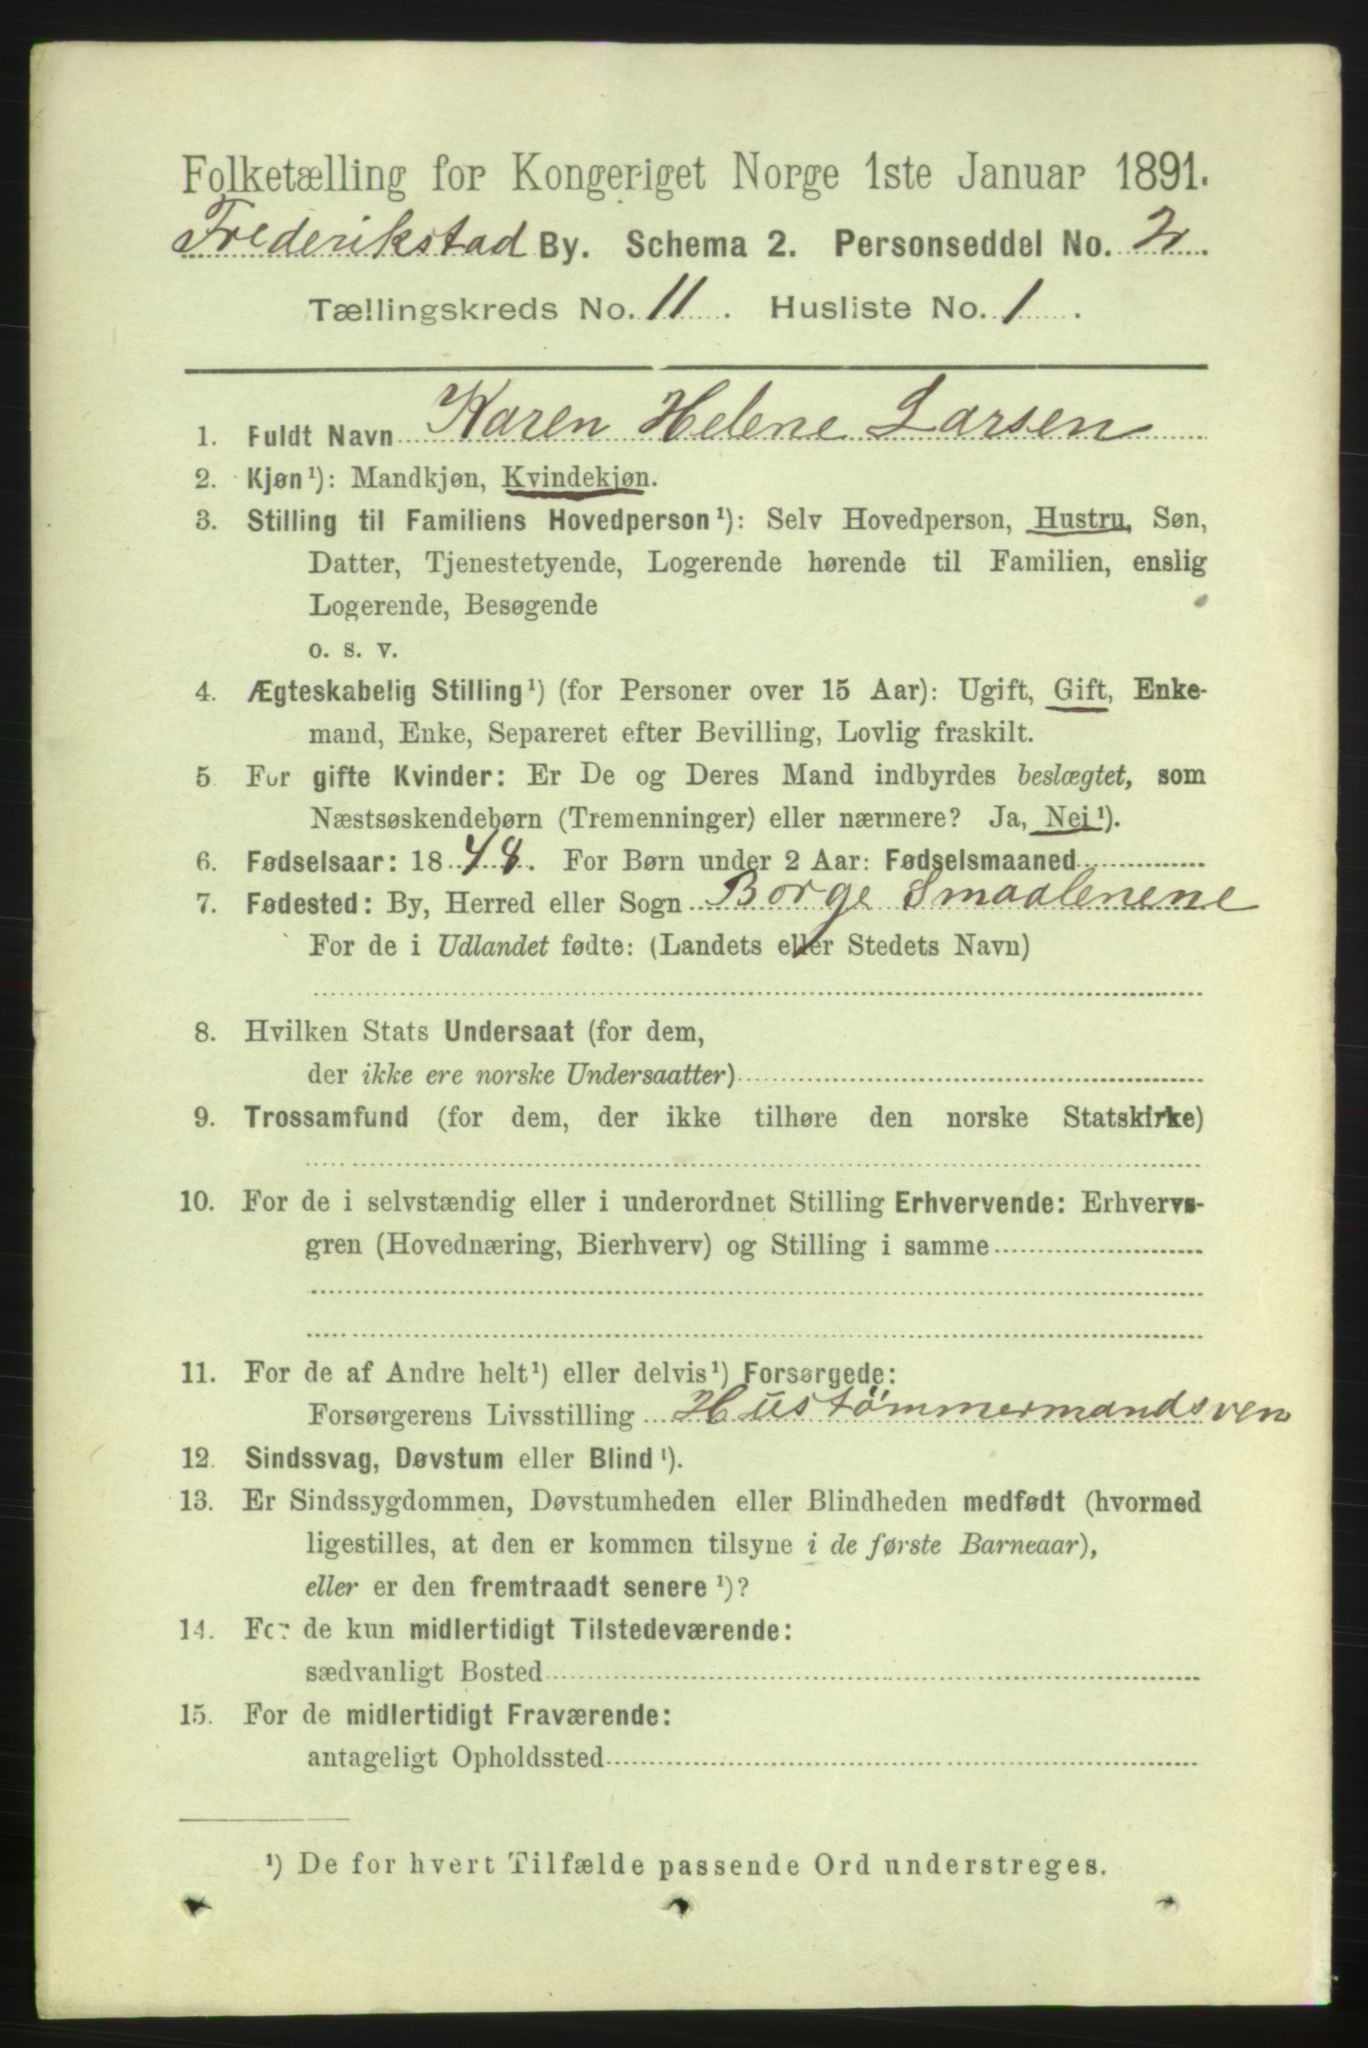 Folketælling for Kongeriget Norge 1ste Januar 1891.
Frederikstad By. Schema 2. Personseddel No. 2.
Tællingskreds No. 11. Husliste No. 1.
1. Fuldt Navn Karen Helene Larsen
2. Kjøn¹): Mandkjøn, Kvindekjøn.
3. Stilling til Familiens Hovedperson¹): Selv Hovedperson, Hustru, Søn,
Datter, Tjenestetyende, Logerende hørende til Familien, enslig
Logerende, Besøgende
o. s. v.
4. Ægteskabelig Stilling¹) (for Personer over 15 Aar): Ugift, Gift, Enke-
mand, Enke, Separeret efter Bevilling, Lovlig fraskilt.
5. For gifte Kvinder: Er De og Deres Mand indbyrdes beslægtet, som
Næstsøskendebørn (Tremenninger) eller nærmere? Ja, Nei¹).
6. Fødselsaar: 1848. For Børn under 2 Aar: Fødselsmaaned
7. Fødested: By, Herred eller Sogn Borge Smaalenene
For de i Udlandet fødte: (Landets eller Stedets Navn)
8. Hvilken Stats Undersaat (for dem,
der ikke ere norske Undersaatter)
9. Trossamfund (for dem, der ikke tilhøre den norske Statskirke)
10. For de i selvstændig eller i underordnet Stilling Erhvervende: Erhvervs-
gren (Hovednæring, Bierhverv) og Stilling i samme
11. For de af Andre helt¹) eller delvis¹) Forsørgede:
Forsørgerens Livsstilling Hustømmermandsven
12. Sindssvag, Døvstum eller Blind¹).
13. Er Sindssygdommen, Døvstumheden eller Blindheden medfødt (hvormed
ligestilles, at den er kommen tilsyne i de første Barneaar),
eller er den fremtraadt senere¹)?
14. For de kun midlertidigt Tilstedeværende:
sædvanligt Bosted
15. For de midlertidigt Fraværende:
antageligt Opholdssted
¹) De for hvert Tilfælde passende Ord understreges.